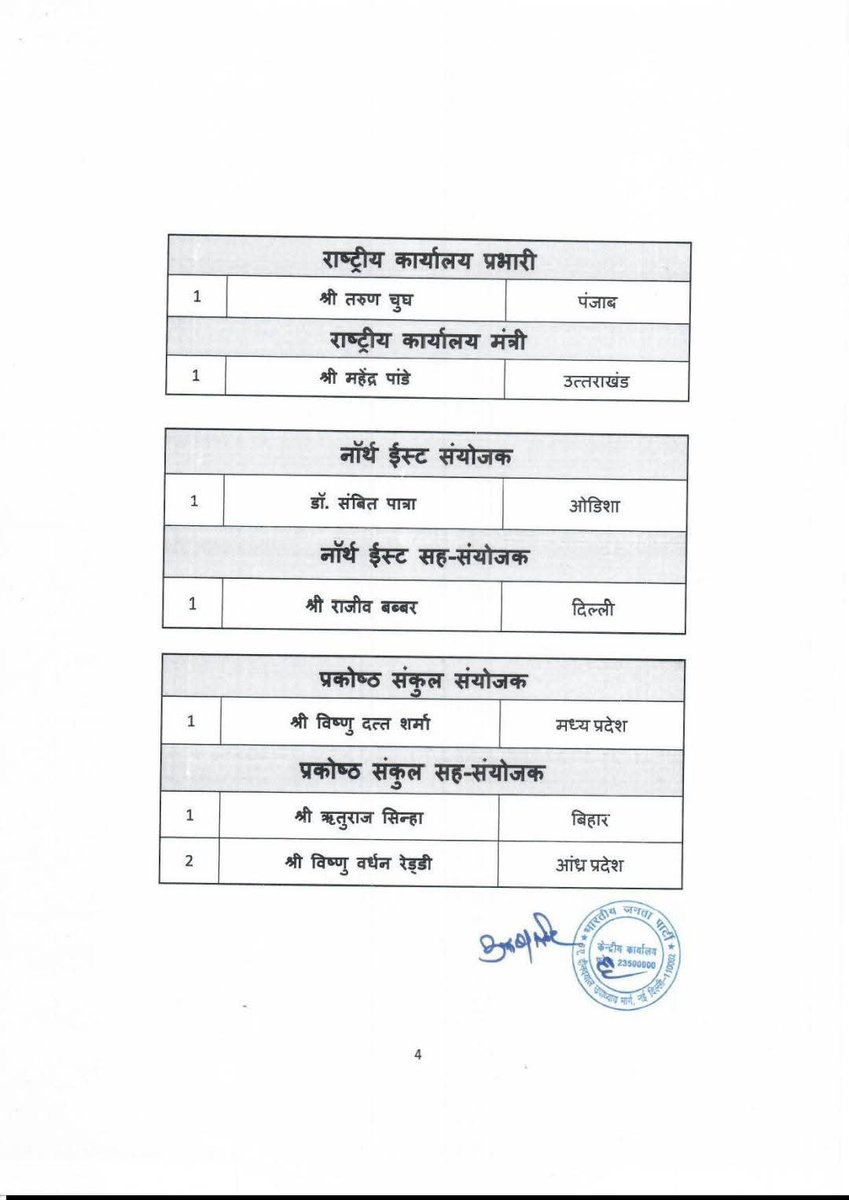 राष्ट्रीय कार्यालय प्रभारी
1 श्री तरुण चुघ पंजाब
राष्ट्रीय कार्यालय मंत्री
1 श्री महेंद्र पांडे उत्तराखंड
नॉर्थ ईस्ट संयोजक
1 डॉ. संबित पात्रा ओडिशा
नॉर्थ ईस्ट सह-संयोजक
1 श्री राजीव बब्बर दिल्ली
प्रकोष्ठ संकुल संयोजक
1 श्री विष्णु दत्त शर्मा मध्य प्रदेश
प्रकोष्ठ संकुल सह-संयोजक
1 श्री ऋतुराज सिन्हा बिहार
2 श्री विष्णु वर्धन रेड्डी आंध्र प्रदेश
भारतीय जनता पार्टी
केन्द्रीय कार्यालय
23500000
दीनदयाल उपाध्याय मार्ग, नई दिल्ली-110002
4